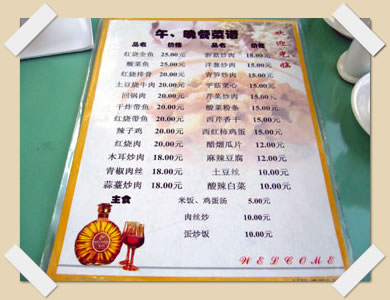 午、晚餐菜谱
欢迎光临
品名 价格 品名 价格
红烧全鱼 25.00元 蒜苔炒肉 15.00元
酸菜鱼 25.00元 洋葱炒肉 15.00元
红烧排骨 25.00元 青笋炒肉 15.00元
土豆烧牛肉 20.00元 平菇菜心 15.00元
回锅肉 20.00元 芹菜炒肉 15.00元
干炸带鱼 20.00元 酸菜粉条 15.00元
红烧带鱼 20.00元 西芹香干 15.00元
辣子鸡 20.00元 西红柿鸡蛋 15.00元
红烧肉 20.00元 醋熘瓜片 12.00元
木耳炒肉 18.00元 麻辣豆腐 12.00元
青椒肉丝 18.00元 土豆丝 10.00元
蒜薹炒肉 18.00元 酸辣白菜 10.00元
主食 米饭、鸡蛋汤 5.00元
肉丝炒 10.00元
蛋炒饭 10.00元
WELCOME